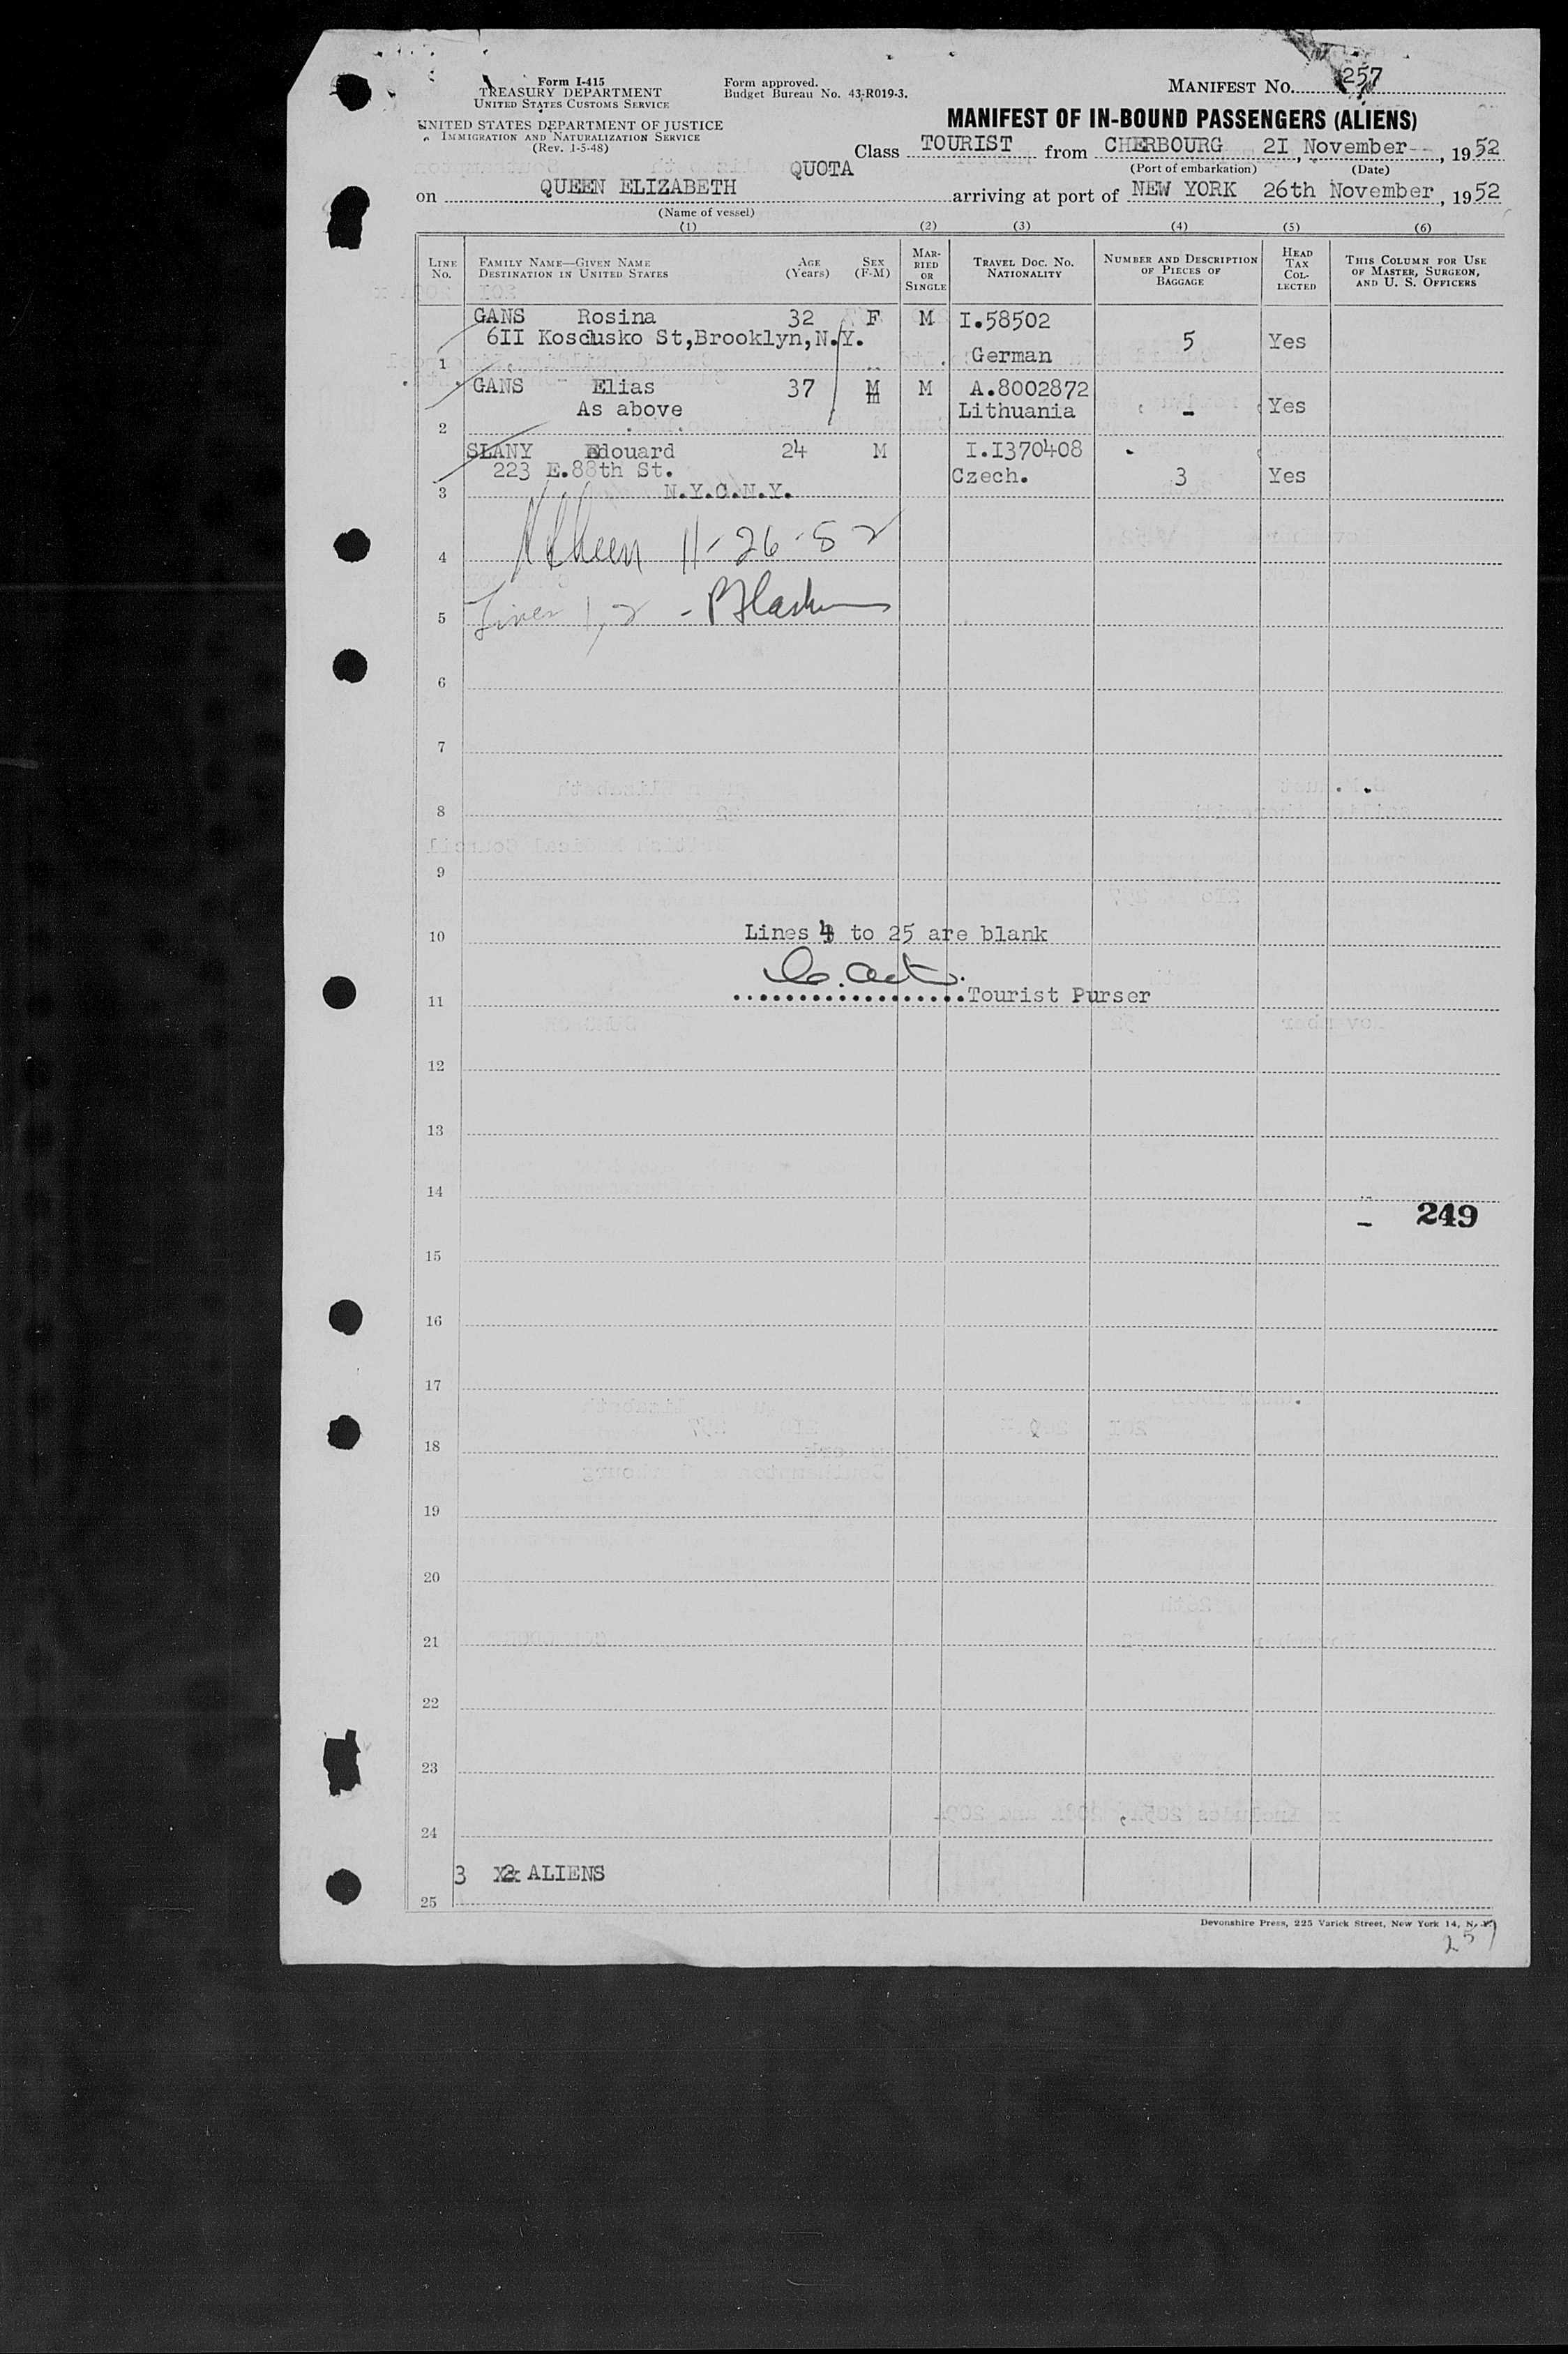 Form I-415
TREASURY DEPARTMENT
UNITED STATES CUSTOMS SERVICE
UNITED STATES DEPARTMENT OF JUSTICE
IMMIGRATION AND NATURALIZATION SERVICE
(Rev. 1-5-48)
Form approved.
Budget Bureau No. 43-R019-3.
MANIFEST NO. 257
MANIFEST OF IN-BOUND PASSENGERS (ALIENS)
Class TOURIST from CHERBOURG 2I, November, 1952
QUOTA
(Port of embarkation) (Date)
on QUEEN ELIZABETH arriving at port of NEW YORK 26th November, 1952
(Name of vessel)
(1) (2) (3) (4) (5) (6)
LINE NO. FAMILY NAME—GIVEN NAME DESTINATION IN UNITED STATES AGE (Years) SEX (F-M) MARRIED OR SINGLE TRAVEL DOC. NO. NATIONALITY NUMBER AND DESCRIPTION OF PIECES OF BAGGAGE HEAD TAX COLLECTED THIS COLUMN FOR USE OF MASTER, SURGEON, AND U. S. OFFICERS
GANS Rosina 32 F M I.58502
6II Koscusko St,Brooklyn,N.Y. 5 Yes
1 German
GANS Elias 37 M M A.8002872
As above Lithuania - Yes
2
SLANY Edouard 24 M I.I370408
223 E.88th St. Czech. 3 Yes
3 N.Y.C.N.Y.
4 11-26-52
5 Lines 1, 2 -
6
7
8
9
10 Lines 4 to 25 are blank
11 Tourist Purser
12
13
14
- 249
15
16
17
18
19
20
21
22
23
24
3 ALIENS
25
Devonshire Press, 225 Varick Street, New York 14, N. Y.
257